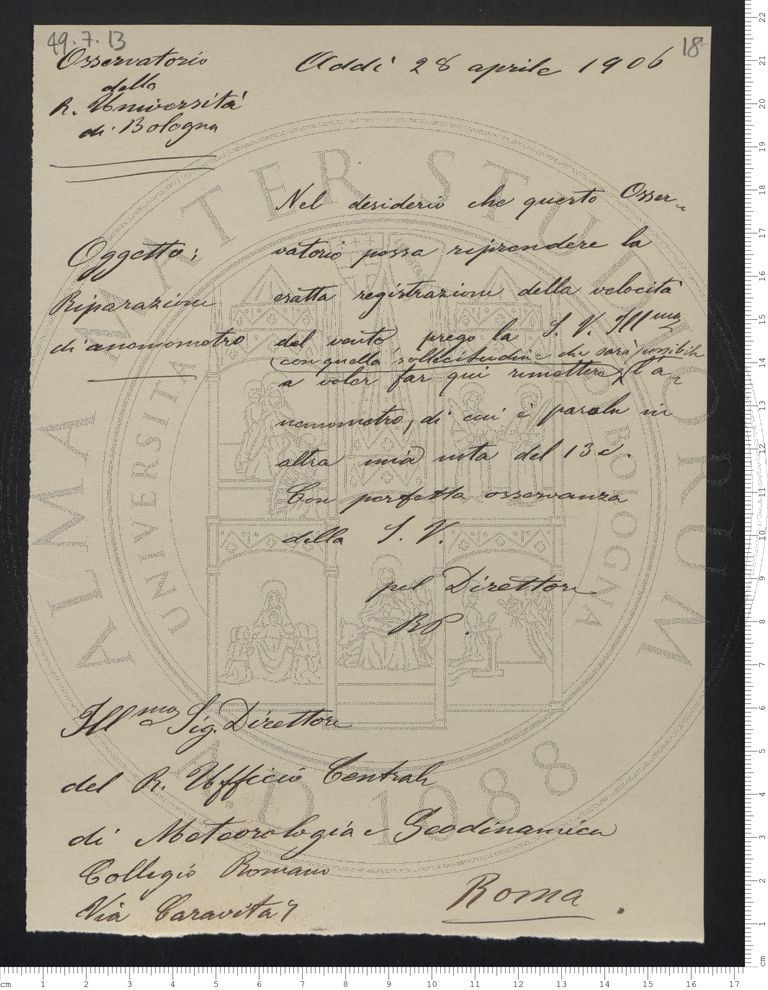 49.7.13
18
Osservatorio
della
R. Università
di Bologna
Addì 28 aprile 1906
Oggetto:
Riparazione
di anemometro
Nel desiderio che questo Osser-
vatorio possa riprendere la
esatta registrazione della velocità
del vento prego la S. V. Illma
con quella sollecitudine che sarà possibile
a voler far qui rimettere l'a-
nemometro, di cui è parola in
altra mia nota del 13 c.
Con perfetta osservanza
della S. V.
pel Direttore
RP.
Illmo Sig. Direttore
del R. Ufficio Centrale
di Meteorologia e Geodinamica
Collegio Romano
Via Caravita 7
Roma.
ALMA MATER STUDIORUM
A.D. 1088
UNIVERSITA
BOLOGNA